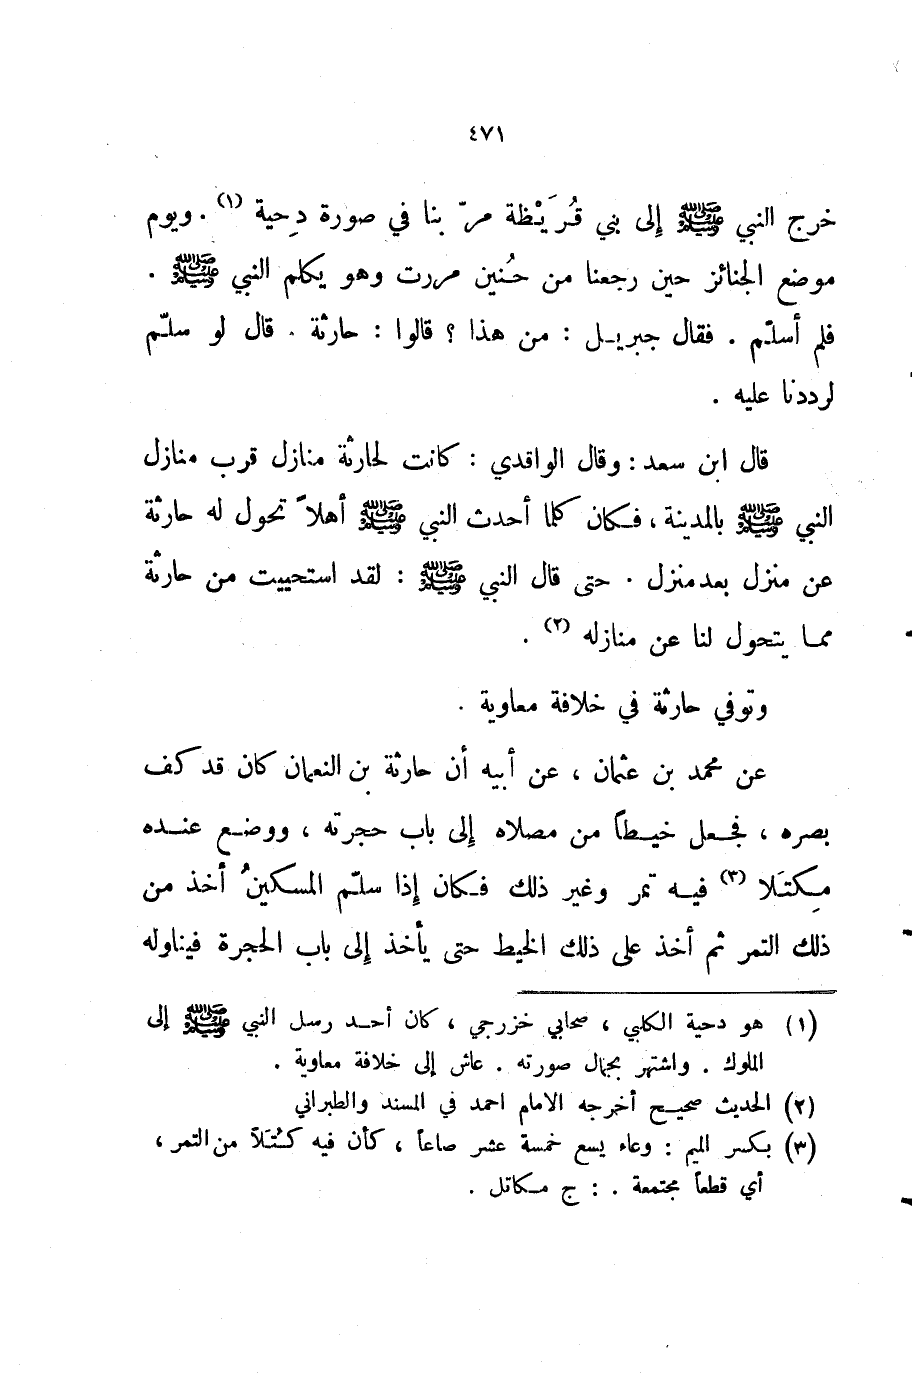 ٤٧١
خرج النبي ﷺ إلى بني قُرَيْظة مرّ بنا في صورة دِحية (١) . ويوم
موضع الجنائز حين رجعنا من حُنين مررت وهو يكلم النبي ﷺ .
فلم أسلّم . فقال جبريل : من هذا ؟ قالوا : حارثة . قال لو سلّم
لرددنا عليه .
قال ابن سعد : وقال الواقدي : كانت لحارثة منازل قرب منازل
النبي ﷺ بالمدينة ، فكان كلما أحدث النبي ﷺ أهلاً تحول له حارثة
عن منزل بعد منزل . حتى قال النبي ﷺ : لقد استحييت من حارثة
مما يتحول لنا عن منازله (٢) .
وتوفي حارثة في خلافة معاوية .
عن محمد بن عثمان ، عن أبيه أن حارثة بن النعمان كان قد كف
بصره ، فجعل خيطاً من مصلاه إلى باب حجرته ، ووضع عنده
مِكتَلا (٣) فيه تمر وغير ذلك فكان إذا سلّم المسكينُ أخذ من
ذلك التمر ثم أخذ على ذلك الخيط حتى يأخذ إلى باب الحجرة فيناوله
(١) هو دحية الكلبي ، صحابي خزرجي ، كان أحد رسل النبي ﷺ إلى
الملوك . واشتهر بجمال صورته . عاش إلى خلافة معاوية .
(٢) الحديث صحيح أخرجه الامام احمد في المسند والطبراني
(٣) بكسر الميم : وعاء يسع خمسة عشر صاعاً ، كأن فيه كُتَلاً من التمر ،
أي قطعاً مجتمعة . : ج مكاتل .